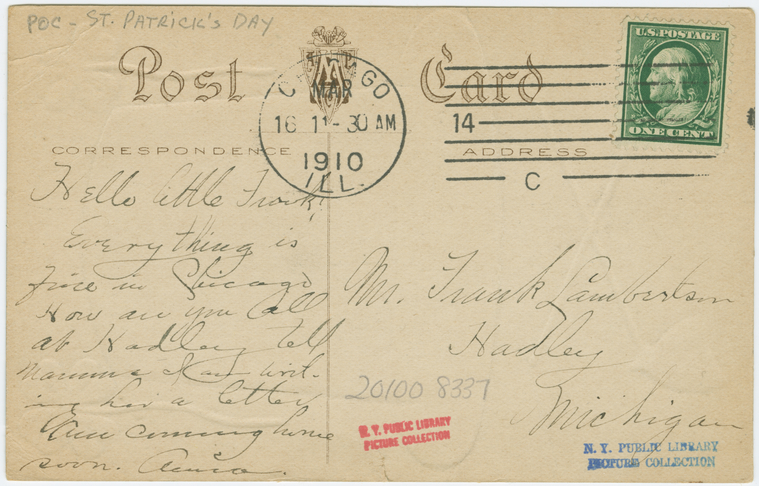 POC - ST. PATRICK'S DAY
Post Card
U.S. POSTAGE
ONE CENT
CHICAGO
MAR
16 11-30 AM
1910
ILL.
14
C
CORRESPONDENCE
ADDRESS
Hello little Frank!
Everything is
fine in Chicago
How are you all
at Hadley tell
Mamma I am writ-
ing her a letter
Am coming home
soon.
Mr. Frank Lambertson
Hadley
Michigan
20100 8337
N. Y. PUBLIC LIBRARY
PICTURE COLLECTION
N. Y. PUBLIC LIBRARY
PICTURE COLLECTION